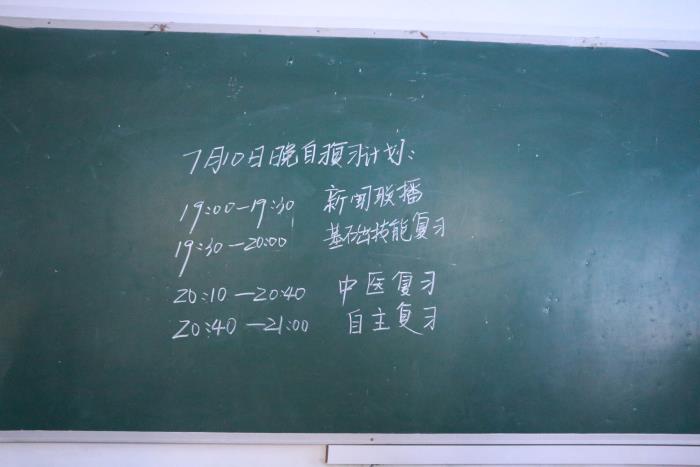 7月10日晚自预习计划:
19:00—19:30 新闻联播
19:30—20:00 基础技能复习
20:10—20:40 中医复习
20:40—21:00 自主复习